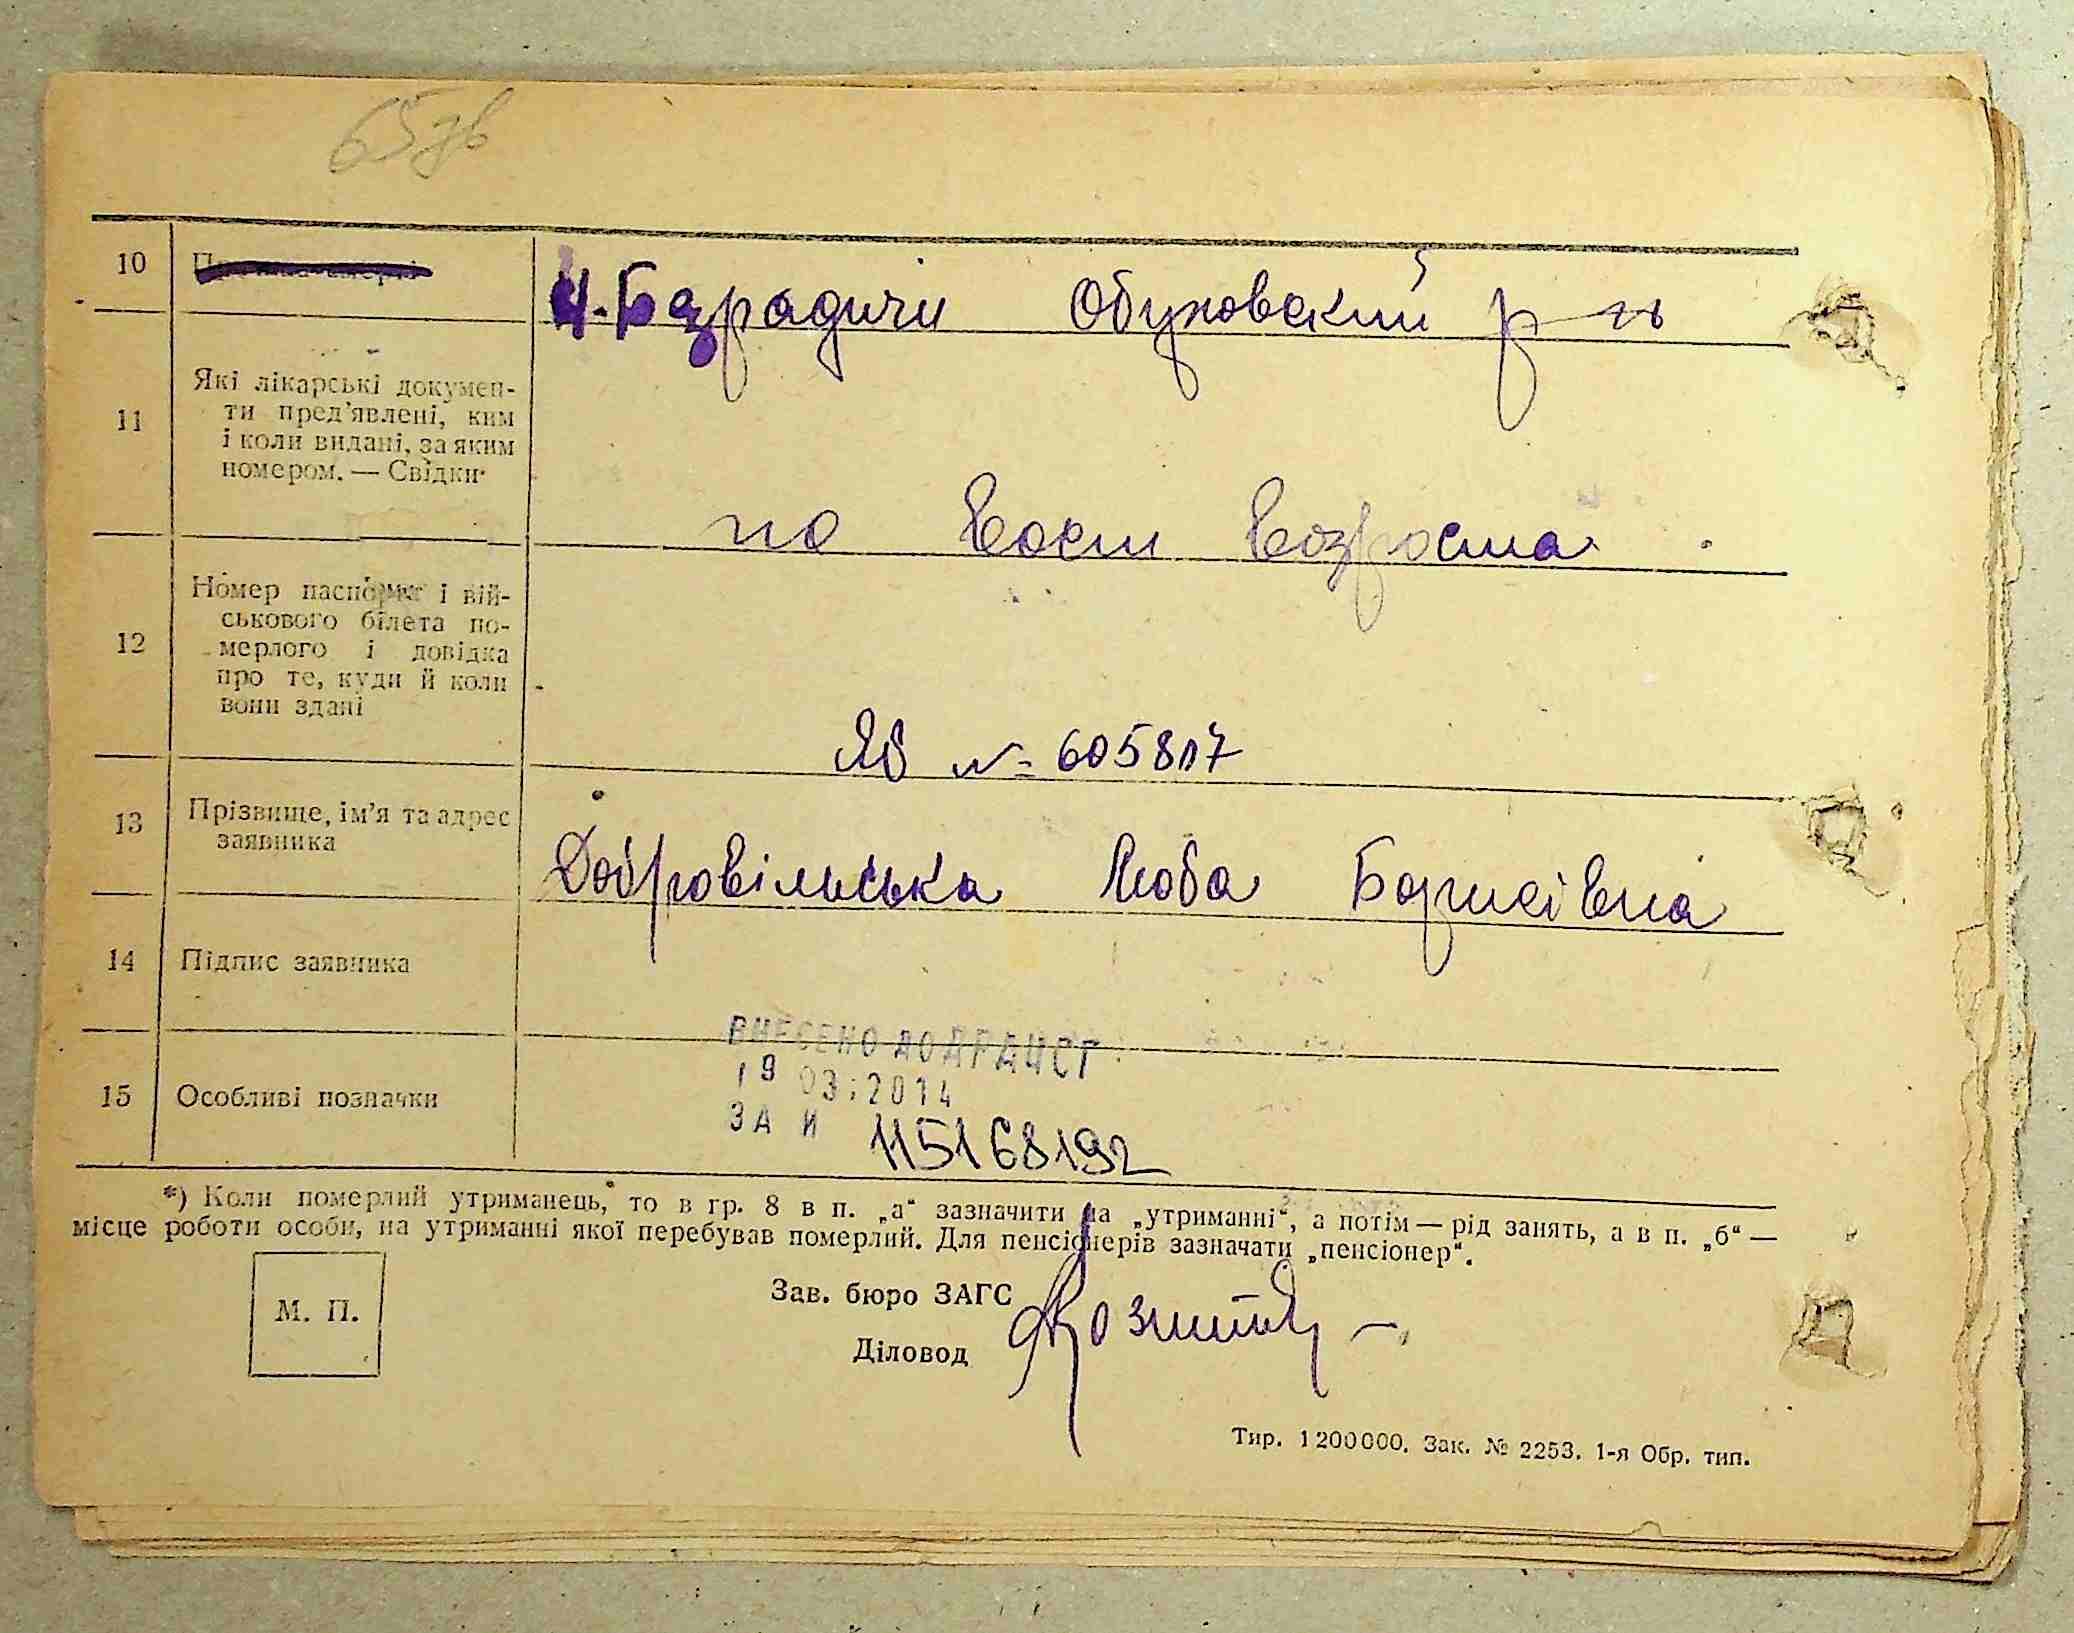 65зв
10
Н. Безрадичи Обуховский р-н
11 Які лікарські докумен-
ти пред’явлені, ким
і коли видані, за яким
номером. — Свідки
по восст возроста
12 Номер паспорта і вій-
ського білета по-
мерлого і довідка
про те, куди й коли
вони здані
ЯБ № 605807
13 Прізвище, ім’я та адрес
заявника
Добровільська Люба Борисівна
14 Підпис заявника
15 Особливі позначки
ВНЕСЕНО ДО ДРАЦСГ
19 03.2014
ЗА №
115168192
*) Коли померлий утриманець, то в гр. 8 в п. „а“ зазначити на „утриманні“, а потім — рід занять, а в п. „б“ —
місце роботи особи, на утриманні якої перебував померлий. Для пенсіонерів зазначати „пенсіонер“.
М. П.
Зав. бюро ЗАГС
Діловод
Тир. 1200000. Зак. № 2253. 1-я Обр. тип.